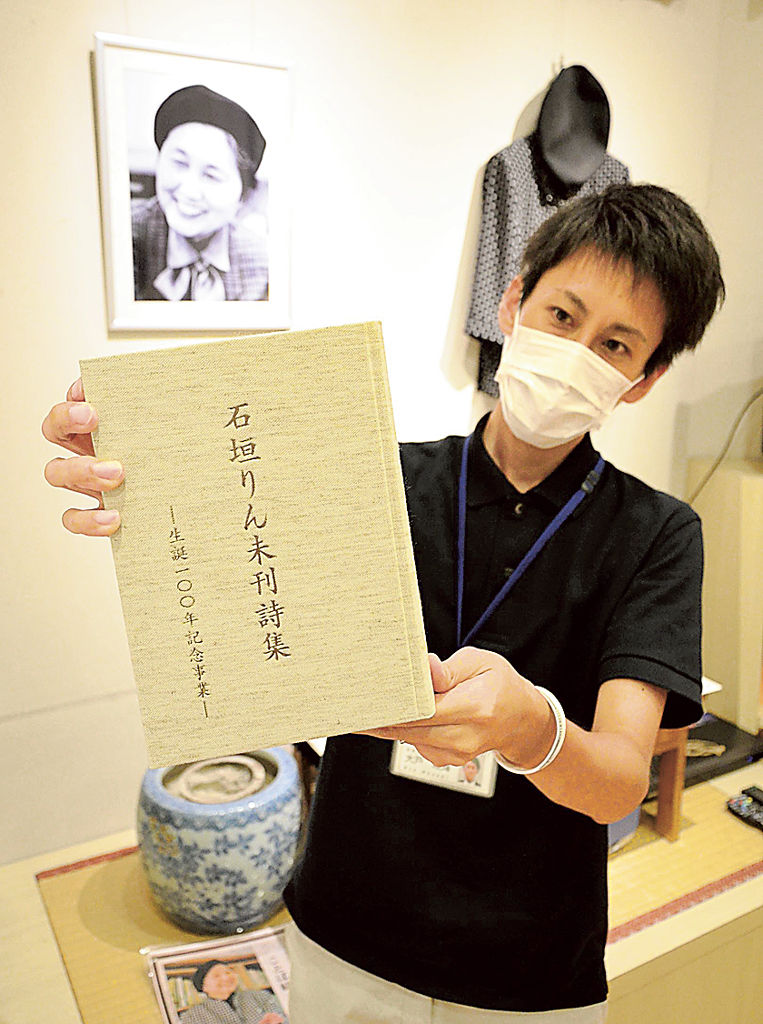 石垣りん未刊詩集
―生誕一〇〇年記念事業―